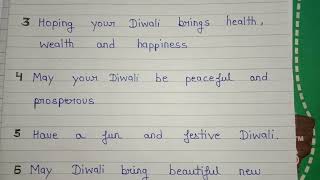 3 Hoping your Diwali brings health,
wealth and happiness
4 May your Diwali be peaceful and
prosperous
5 Have a fun and festive Diwali.
5 May Diwali bring beautiful new